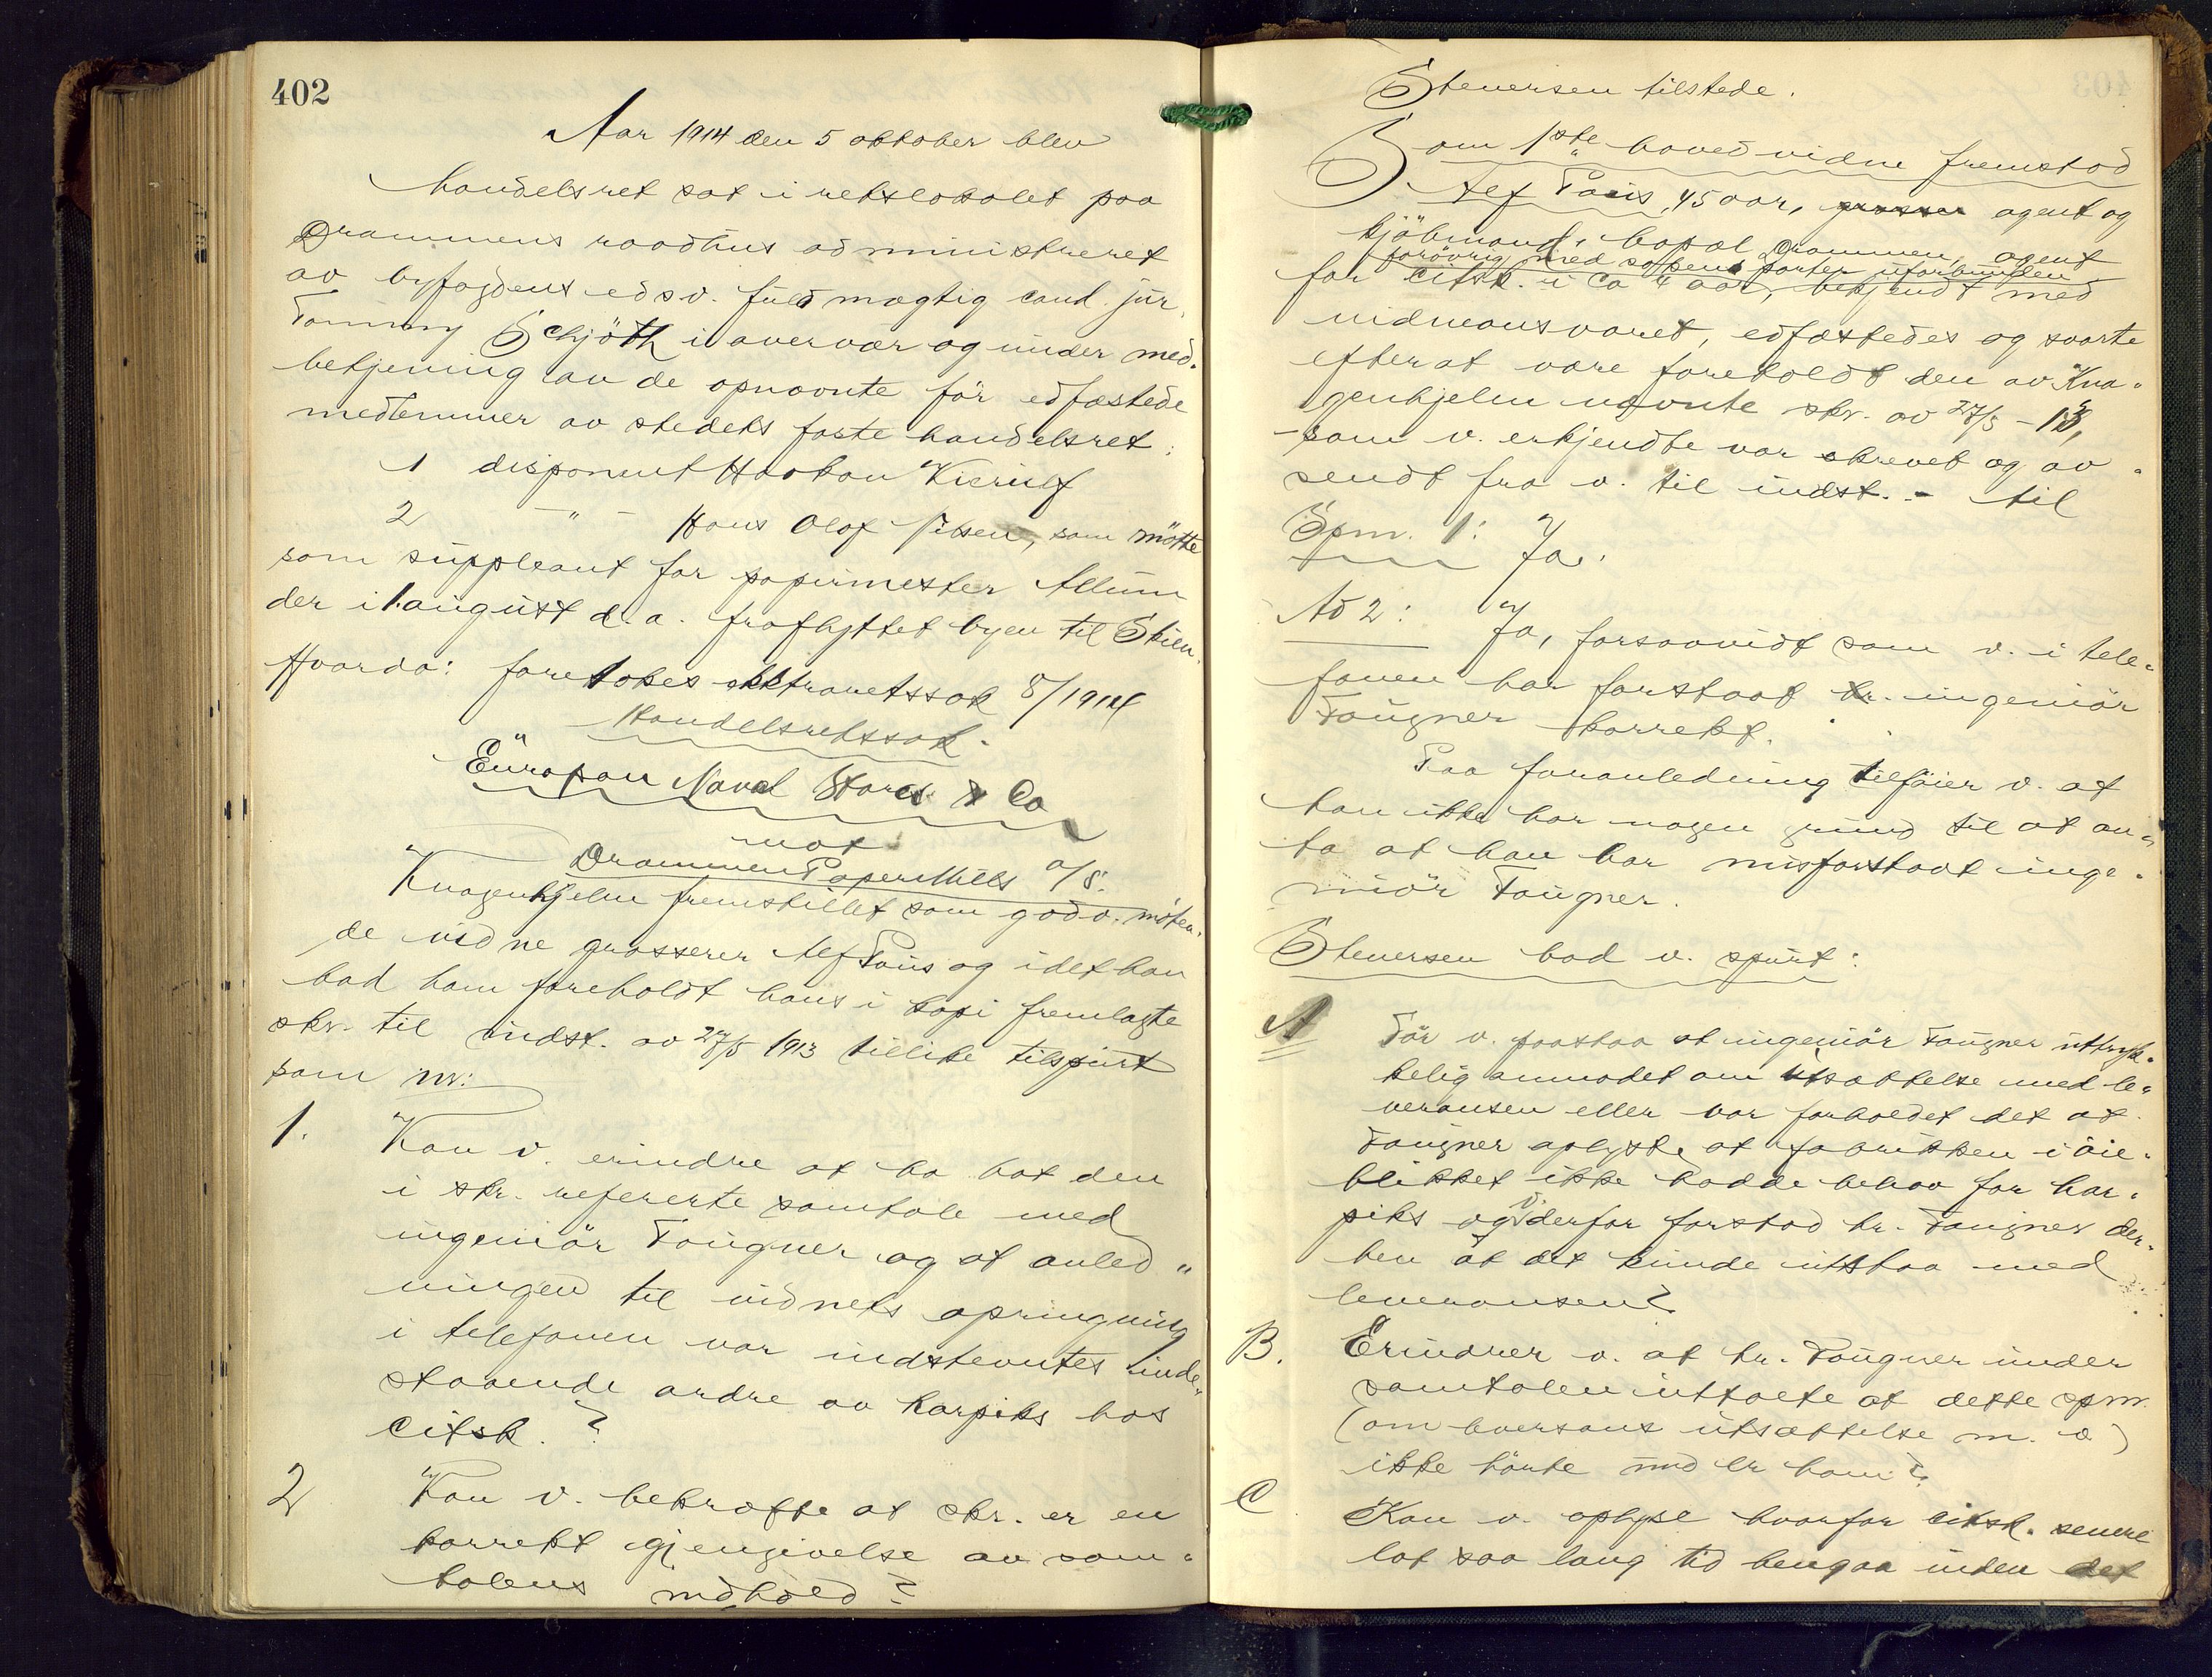 402
Aar 1914 den 5 oktober blev
handelsret sat i retslokalet paa
Drammens raadhus administreret
av byfogdens edsv. fuldmægtig cand. jur.
Tommy Schjöth i overvær og under med-
betjening av de opnævnte før edfæstede
medlemmer av stedets faste handelsret:
1 disponent Haakon Kierulf
2 - " - Hans Olaf Ibsen, som mötte
som suppleant for papirmester Allum
der i 1. august d. a. fraflyttet byen til Skien.
Hvorda: foretokes ekstraretssak 8/1914
Handelsretssak.
Europæan Naval Stores & Co
mot
Drammen Paper Mills A/S.
Knagenhjelm fremstillet som godv. möten-
de vidne grosserer Alf Paus og idet han
bad ham foreholdt hans i kopi fremlagte
skr. til indst. av 27/5 1913 tillike tilspurt
som nr:
1. Kan v. erindre at ha hat den
i skr. refererte samtale med
ingeniör Fougner og at anled-
ningen til vidnets opringning
i telefonen var indstevntes inde-
staaende ordre av harpiks hos
citsk. ?
2 Kan v. bekræfte at skr. er en
korrekt gjengivelse av sam-
talens indhold ?
Stenersen tilstede.
Som 1ste hovedvidne fremstod
Alf Paus, 45 aar, grosser agent og
kjöbmand, bopæl Drammen, agent
forövrig med sakens parter uforbunden
for citsk. i ca 4 aar, bekjendt med
vidneansvaret, edfæstedes og svarte
efter at være foreholdt den av Kna-
genhjelm nævnte skr. av 27/5 - 13,
- som v. erkjendte var skrevet og av-
sendt fra v. til indst. - til
Spm. 1: Ja.
Ad 2: Ja, forsaavidt som v. i tele-
fonen har forstaat hr. ingeniör
Fougner korrekt.
Paa foranledning tilföier v. at
han ikke har nogen grund til at an-
ta at han har misforstaat inge-
niör Fougner.
Stenersen bad v. spurt:
A Tör v. paastaa at ingeniör Fougner uttryk-
kelig anmodet om utsættelse med le-
veransen eller var forholdet det at
Fougner oplyste at fabrikken i öie-
blikket ikke hadde behov for har-
piks og v. derfor forstod hr. Fougner der-
hen at det kunde utstaa med
leveransen?
B. Erindrer v. at hr. Fougner under
samtalen uttalte at dette spm.
(om leveransutsættelse m. v.)
ikke hörte under ham?
C Kan v. oplyse hvorfor citsk. senere
lot saa lang tid hengaa inden det